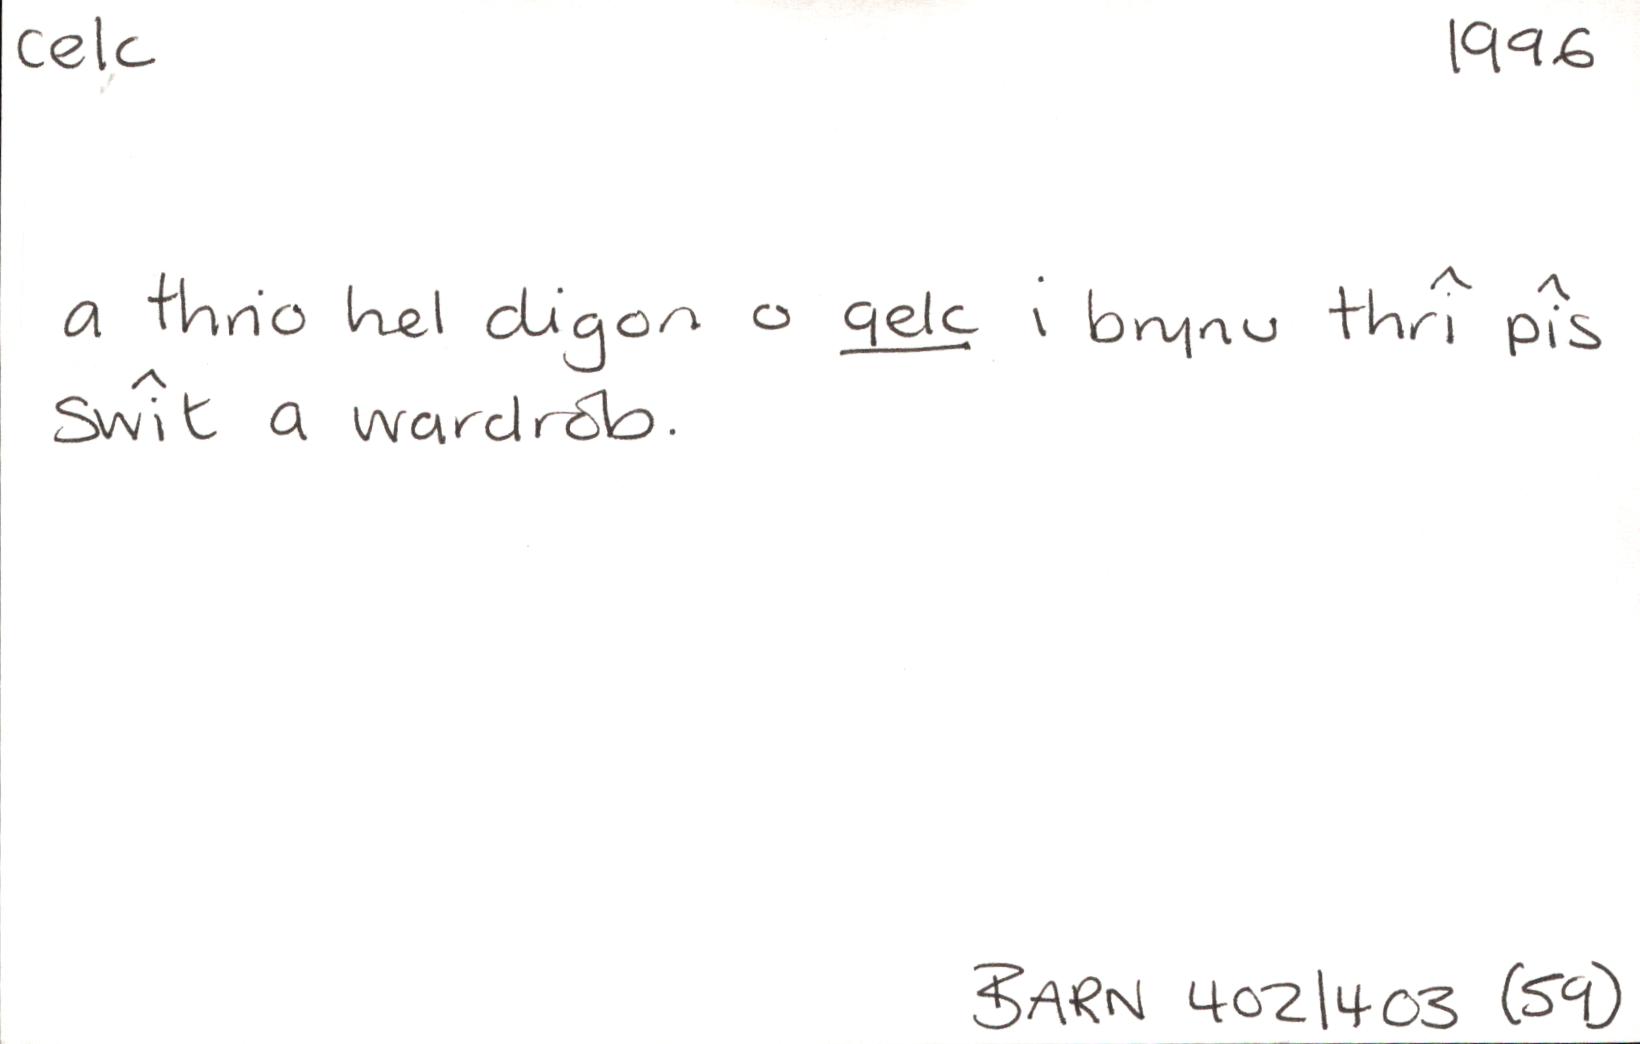 celc 1996
a thrio hel digon o gelc i brynu thrî pîs
swît a wardrôb.
BARN 402/403 (59)